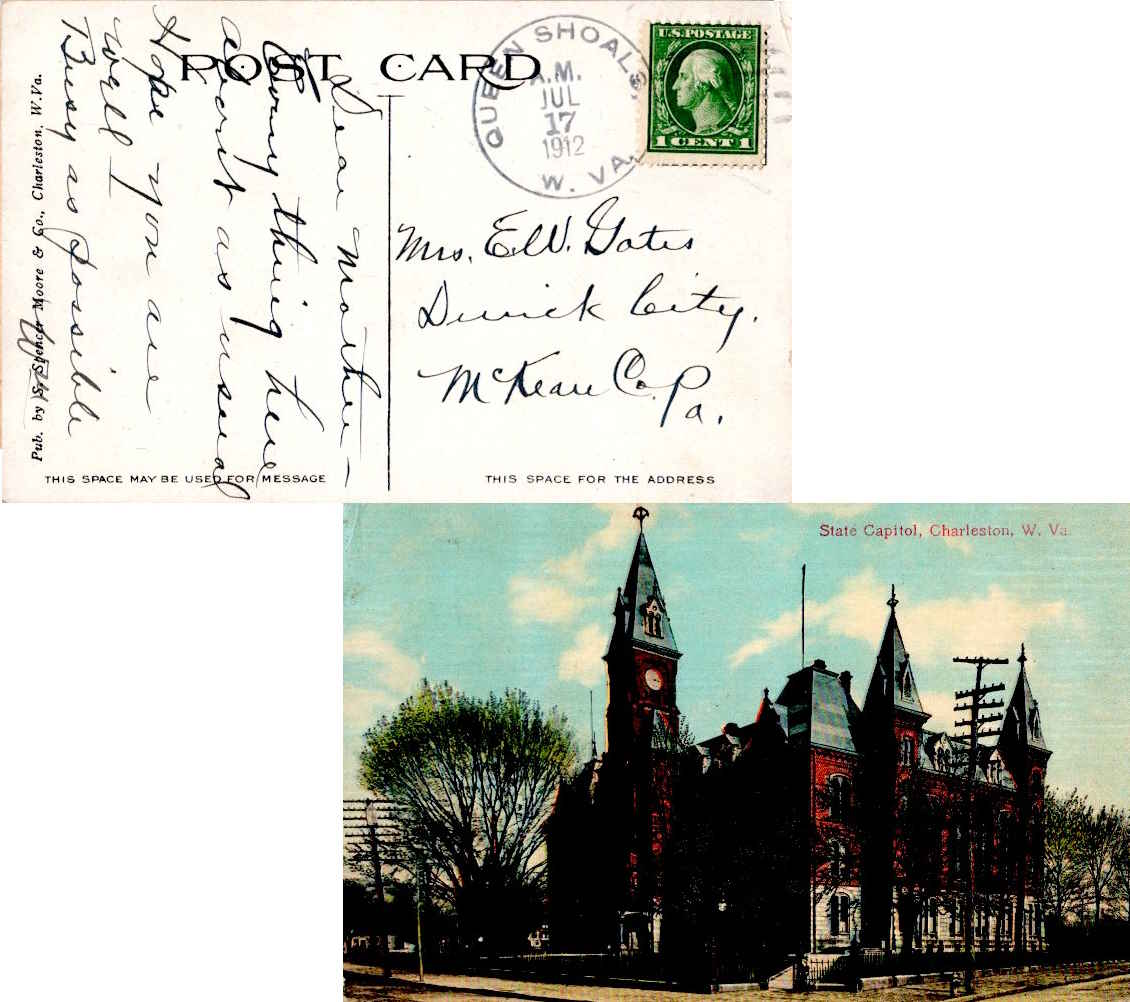 POST CARD
QUEEN SHOALS,
W. VA.
A.M.
JUL
17
1912
U.S. POSTAGE
1 CENT 1
Dear Mother —
Every thing here
about as usual
Hope you are
well —
Busy as possible
Pub. by S. Spencer Moore & Co., Charleston, W. Va.
Mrs. E.W. Gates
Derrick City.
McKean Co. Pa.
THIS SPACE MAY BE USED FOR MESSAGE
THIS SPACE FOR THE ADDRESS
State Capitol, Charleston, W. Va.